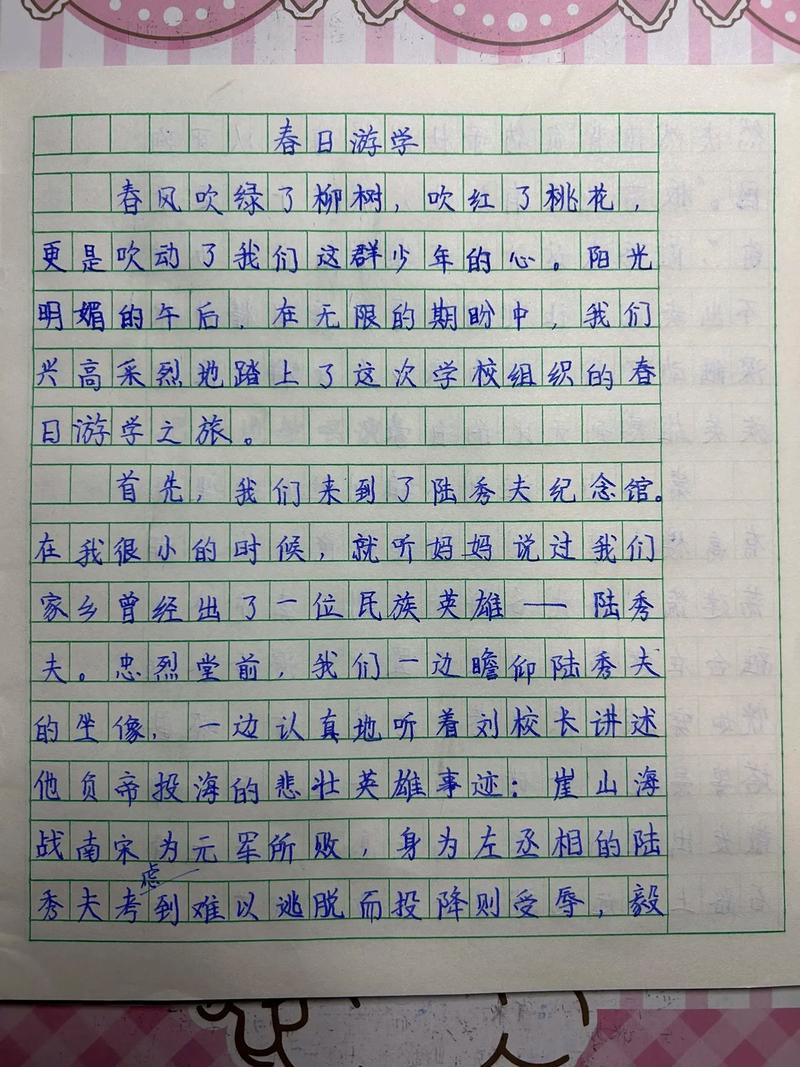 春日游学
春风吹绿了柳树，吹红了桃花，
更是吹动了我们这群少年的心。阳光
明媚的午后，在无限的期盼中，我们
兴高采烈地踏上了这次学校组织的春
日游学之旅。
首先，我们来到了陆秀夫纪念馆。
在我很小的时候，就听妈妈说过我们
家乡曾经出了一位民族英雄——陆秀
夫。忠烈堂前，我们一边瞻仰陆秀夫
的坐像，一边认真地听着刘校长讲述
他负帝投海的悲壮英雄事迹：崖山海
战南宋为元军所败，身为左丞相的陆
秀夫考虑到难以逃脱而投降则受辱，毅